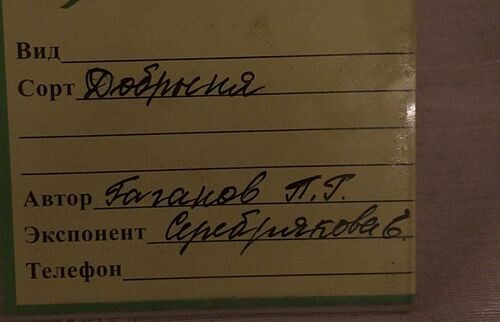 Вид
Сорт Добрыня
Автор Гаганов П.Г.
Экспонент Серебрякова Е.
Телефон